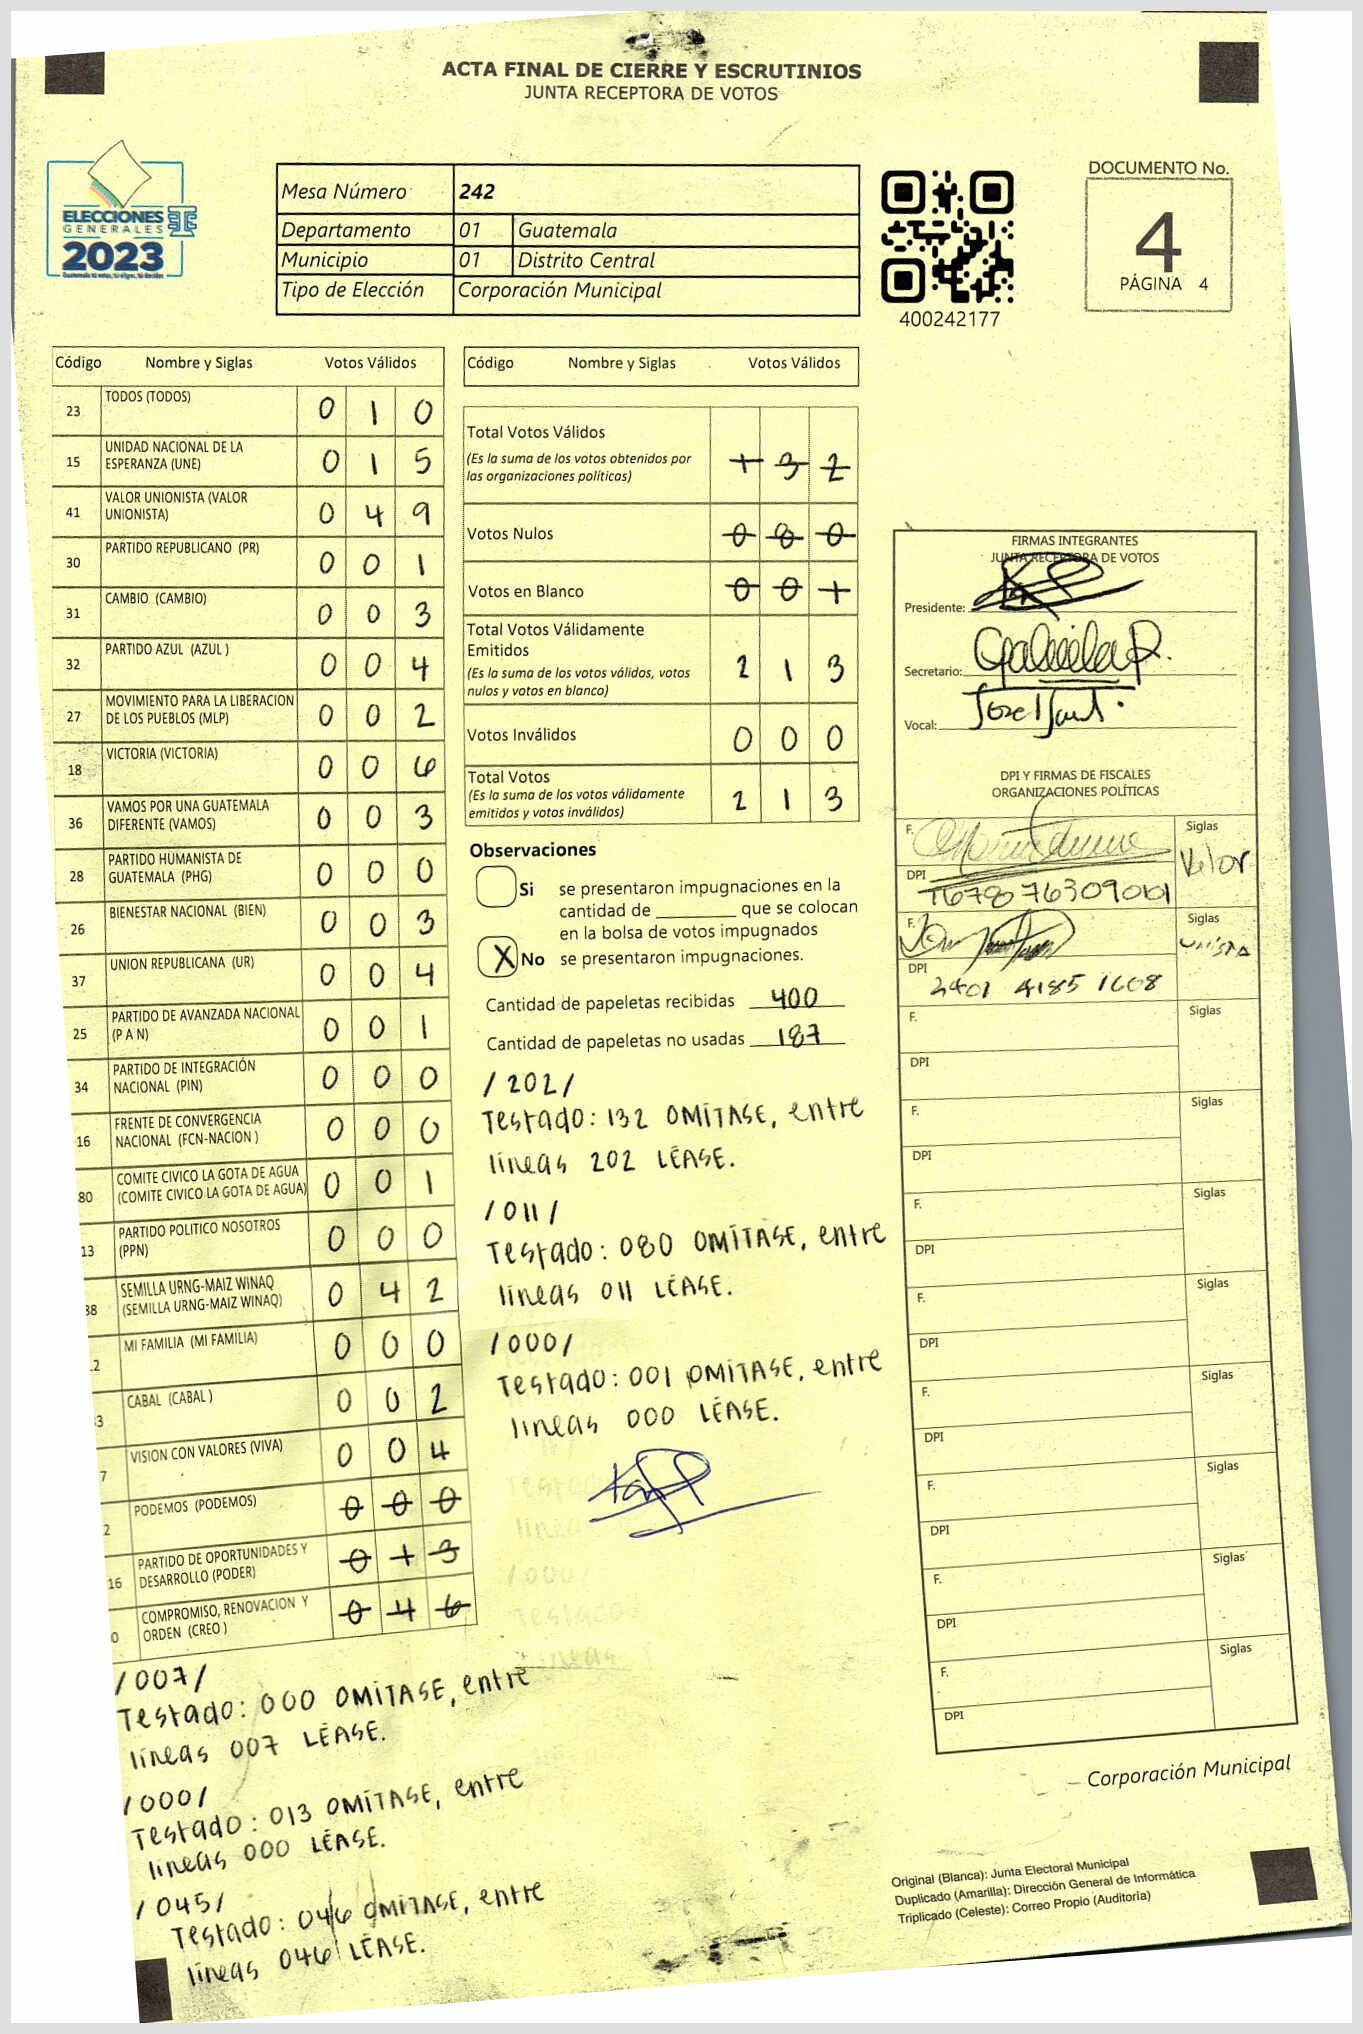 ACTA FINAL DE CIERRE Y ESCRUTINIOS
JUNTA RECEPTORA DE VOTOS
ELECCIONES
GENERALES
2023
Mesa Número 242
Departamento 01 Guatemala
Municipio 01 Distrito Central
Tipo de Elección Corporación Municipal
400242177
DOCUMENTO No.
4
PÁGINA 4
Código Nombre y Siglas Votos Válidos
23 TODOS (TODOS) 0 1 0
15 UNIDAD NACIONAL DE LA
ESPERANZA (UNE) 0 1 5
41 VALOR UNIONISTA (VALOR
UNIONISTA) 0 4 9
30 PARTIDO REPUBLICANO (PR) 0 0 1
31 CAMBIO (CAMBIO) 0 0 3
32 PARTIDO AZUL (AZUL ) 0 0 4
27 MOVIMIENTO PARA LA LIBERACION
DE LOS PUEBLOS (MLP) 0 0 2
18 VICTORIA (VICTORIA) 0 0 6
36 VAMOS POR UNA GUATEMALA
DIFERENTE (VAMOS) 0 0 3
28 PARTIDO HUMANISTA DE
GUATEMALA (PHG) 0 0 0
26 BIENESTAR NACIONAL (BIEN) 0 0 3
37 UNION REPUBLICANA (UR) 0 0 4
25 PARTIDO DE AVANZADA NACIONAL
(P A N) 0 0 1
34 PARTIDO DE INTEGRACIÓN
NACIONAL (PIN) 0 0 0
16 FRENTE DE CONVERGENCIA
NACIONAL (FCN-NACION ) 0 0 0
80 COMITE CIVICO LA GOTA DE AGUA
(COMITE CIVICO LA GOTA DE AGUA) 0 0 1
13 PARTIDO POLITICO NOSOTROS
(PPN) 0 0 0
38 SEMILLA URNG-MAIZ WINAQ
(SEMILLA URNG-MAIZ WINAQ) 0 4 2
2 MI FAMILIA (MI FAMILIA) 0 0 0
3 CABAL (CABAL ) 0 0 2
7 VISION CON VALORES (VIVA) 0 0 4
2 PODEMOS (PODEMOS) 0 0 0
16 PARTIDO DE OPORTUNIDADES Y
DESARROLLO (PODER) 0 1 3
0 COMPROMISO, RENOVACION Y
ORDEN (CREO ) 0 4 6
/007/
Testado: 000 OMÍTASE, entre
líneas 007 LÉASE.
/000/
Testado: 013 OMÍTASE, entre
líneas 000 LÉASE.
/045/
Testado: 046 OMÍTASE, entre
líneas 046 LÉASE.
Código Nombre y Siglas Votos Válidos
Total Votos Válidos
(Es la suma de los votos obtenidos por
las organizaciones políticas) 1 3 2
Votos Nulos 0 8 0
Votos en Blanco 0 0 1
Total Votos Válidamente
Emitidos
(Es la suma de los votos válidos, votos
nulos y votos en blanco) 2 1 3
Votos Inválidos 0 0 0
Total Votos
(Es la suma de los votos válidamente
emitidos y votos inválidos) 2 1 3
Observaciones
Si se presentaron impugnaciones en la
cantidad de ________ que se colocan
en la bolsa de votos impugnados
X No se presentaron impugnaciones.
Cantidad de papeletas recibidas 400
Cantidad de papeletas no usadas 187
/202/
Testado: 132 OMÍTASE, entre
líneas 202 LÉASE.
/011/
Testado: 080 OMÍTASE, entre
líneas 011 LÉASE.
/000/
Testado: 001 OMÍTASE, entre
líneas 000 LÉASE.
FIRMAS INTEGRANTES
JUNTA RECEPTORA DE VOTOS
Presidente:
Secretario:
Vocal:
DPI Y FIRMAS DE FISCALES
ORGANIZACIONES POLÍTICAS
F. Siglas
Valor
DPI
F. Siglas
DPI
2401 4185 1608
F. Siglas
DPI
F. Siglas
DPI
F. Siglas
DPI
F. Siglas
DPI
F. Siglas
DPI
F. Siglas
DPI
F. Siglas
DPI
F. Siglas
DPI
Corporación Municipal
Original (Blanca): Junta Electoral Municipal
Duplicado (Amarilla): Dirección General de Informática
Triplicado (Celeste): Correo Propio (Auditoría)